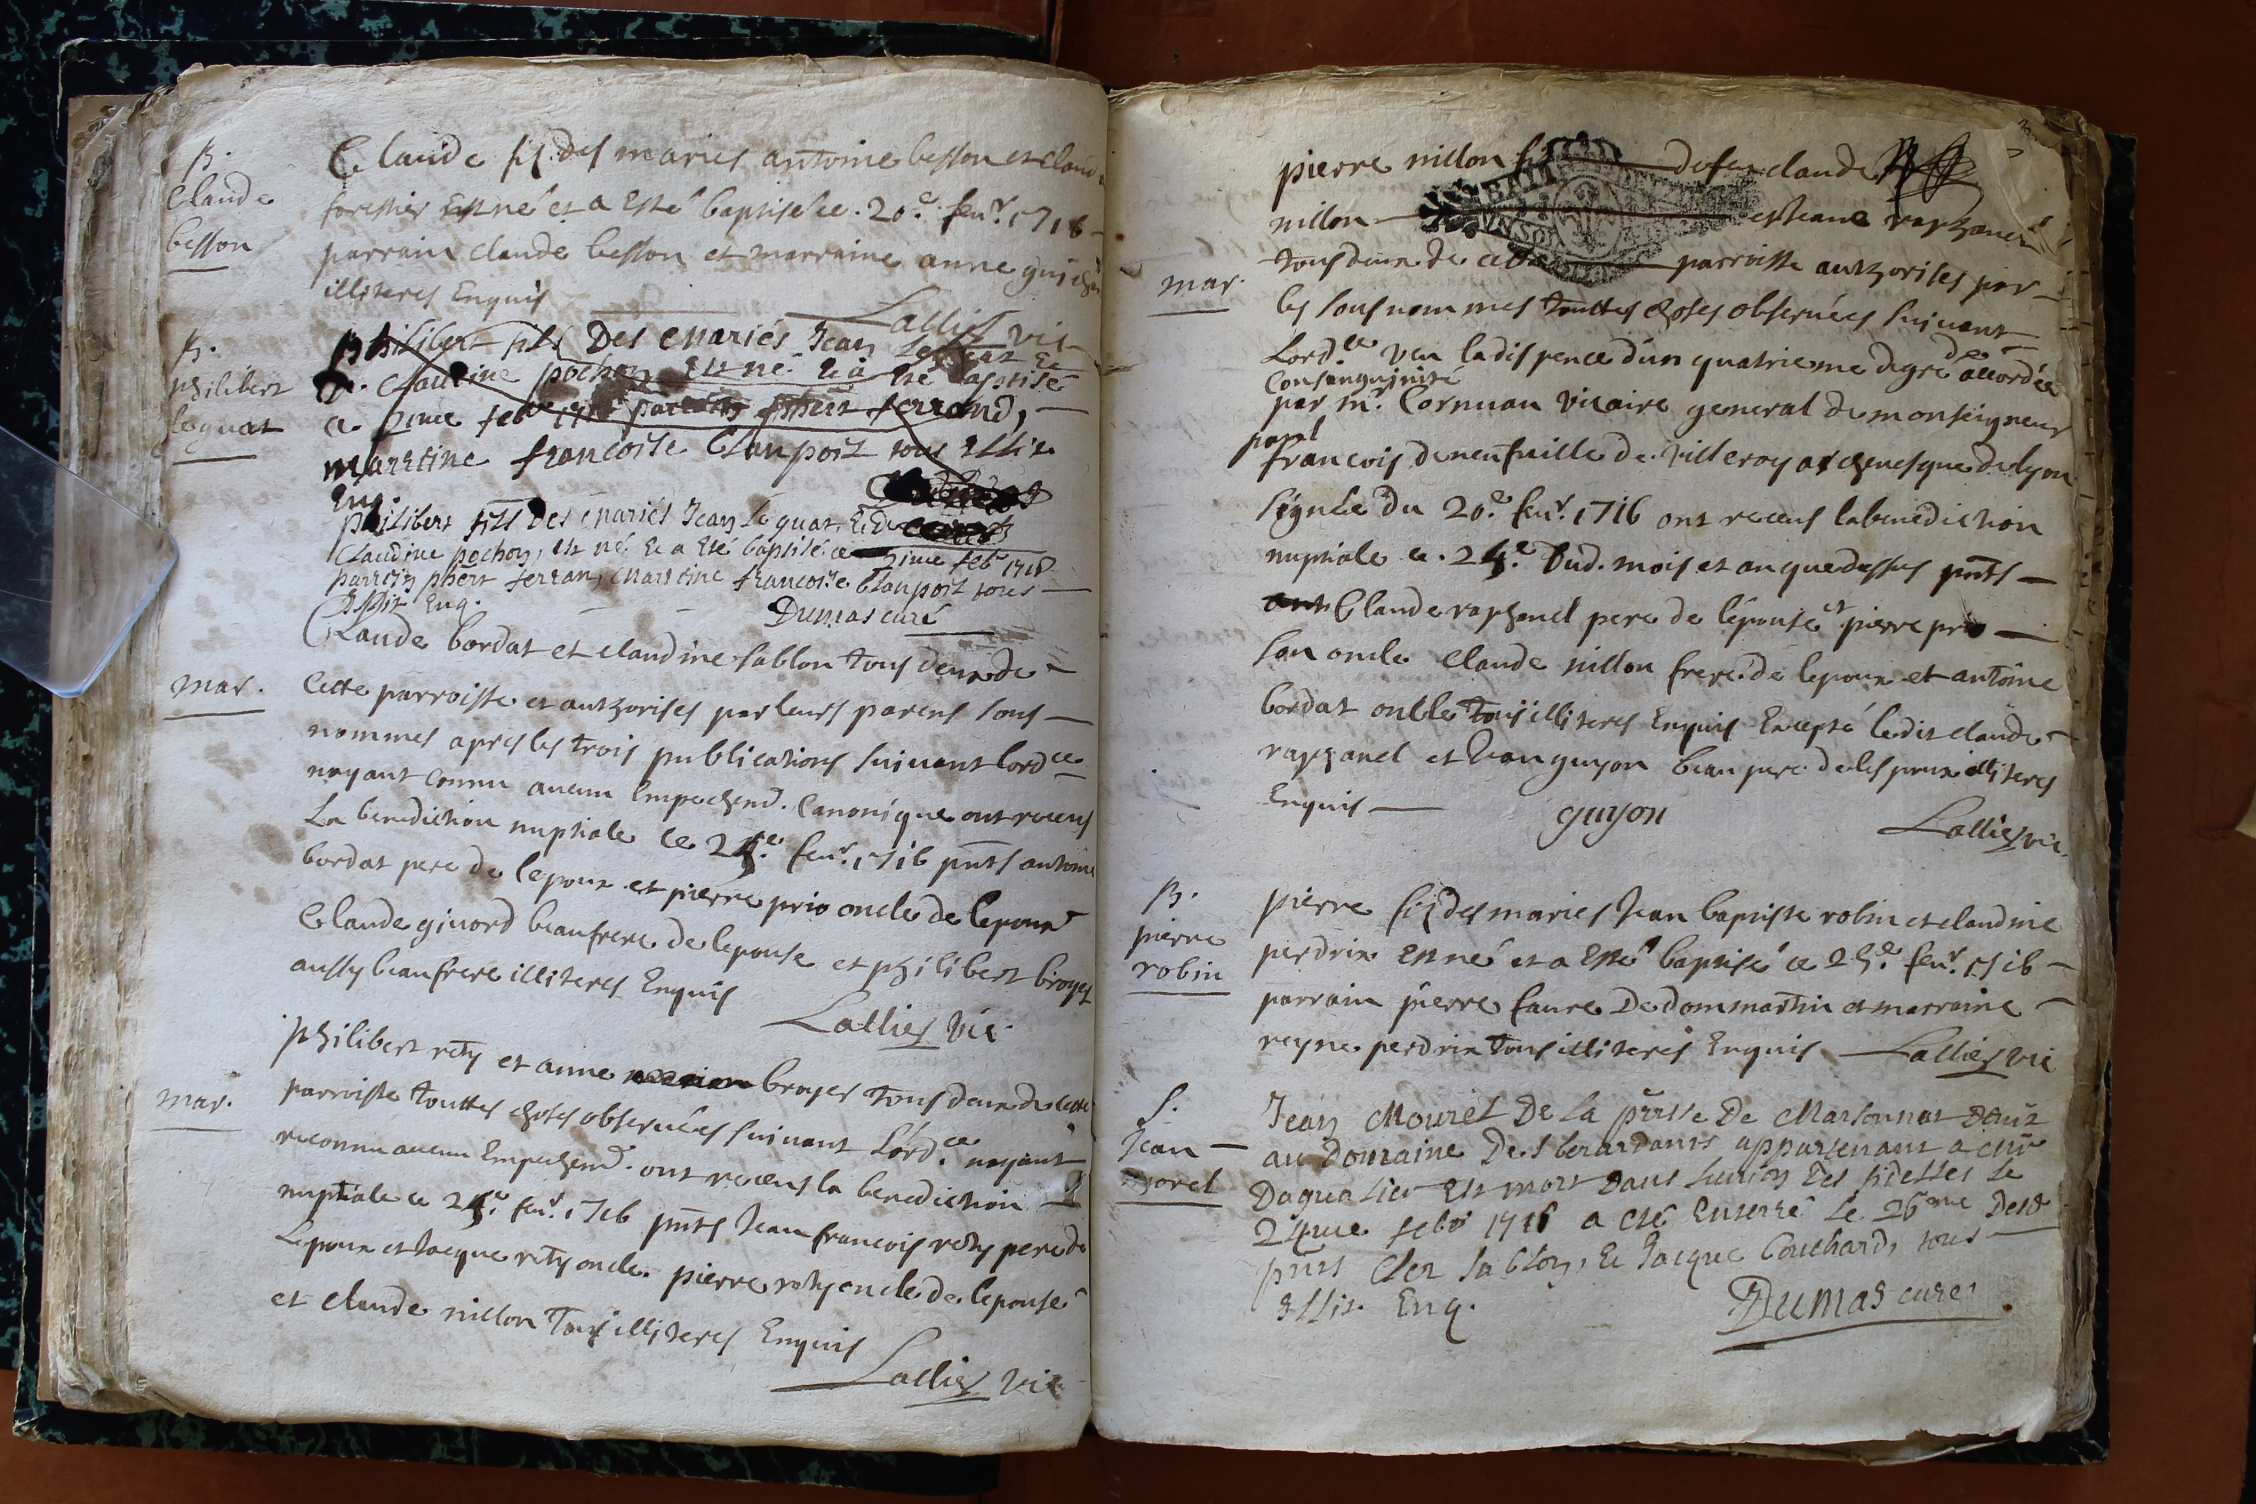 B.
Claude
besson
Claude fiz des maries antoine besson et claud
forestier est né et a esté baptisé le 20.e feur. 1716
parrain claude besson et marraine anne
illiteres Enquis
Lallier vic
B.
philibert
loquat
philibert fils Des mariés Jean loquat Et
De Claudine pochon Est né Et à Eté baptisé
ce feb parrain phert ferrand,
marrine francoise Clanpoit tous Illit.
Enq.
philibert fils Des mariés Jean loquat, Et De
Claudine pochon, est né Et a Eté baptisé ce feb 1716
parrein phert ferran, marrine francoise Clanpoit tous
Illit Enq.
Dumas curé
mar.
Claude bordat et claudine sablon tous deux de
cette parroisse et authorises par leurs parens sous
nommes apres les trois publications suivant lord.ce
nayant connu aucun Empechemt. Canonique ont receus
La benediction nuptiale ce feur. 1716 pnts antoine
bordat pere de lepoux et pierre prio oncle de lepoux
Claude givord beaufrere de lepouse et philibert broyer
aussy beaufrere illiteres Enquis
Lallier vic.
mar.
philibert rety et anne broyer tous deux de cette
parroisse touttes choses observées suivant Lord.ce nayant
reconnu aucun Empechemt. ont receus la benediction
nuptiale ce feur. 1716 pnts Jean francois rety pere de
Lepoux et Jacque rety oncle. pierre rety oncle de lepouse
et claude nillon Tous illiteres Enquis
Lallier vic
mar.
pierre nillon fiz defeu claude
nillon et Jeane raphanel
tous deux de cette parroisse authorises par
les sous nommes touttes choses observées suivant
Lord.ce veu la dispence d'un quatrieme degré de accordée
consanguinité
par mr. Cornuau vicaire general de monseigneur
paul
francois de neufville de villeroy archevesque de lyon
signée du 20.e feur. 1716 ont receus la benediction
nuptiale ce dud. mois et an que dessus pnts
Claude raphanel pere de lépouse et pierre prio
son oncle Claude nillon frere de lepoux et antoine
bordat oncle tous illiteres Enquis Excepté ledit claude
raphanel et Jean guyon beau pere de lespoux illiteres
Enquis
guyon
Lallier vic.
B.
pierre
robin
pierre fiz des maries Jean baptiste robin et claudine
perdrix est né et a Esté baptisé ce 25.e feur. 1716
parrain pierre faure De dommartin et marraine
reyne perdrix tous illiteres Enquis Lallier vic
S.
Jean
morel
Jean Mourel De la prrsse De Marsonnat
au Domaine Des berardants appartenant a
Daguallier Est mort Dans lunion Des fidelles le
24me feb 1716 a eté Enterré le 26eme
pnts Cler sablon, Et Jacque bouchard, tous
Illit. Enq.
Dumas curé